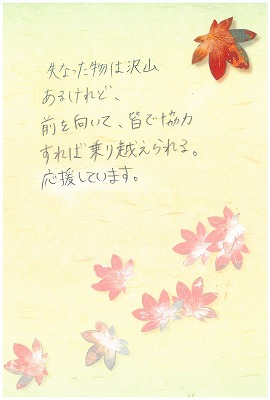 失なった物は沢山
あるけれど、
前を向いて、皆で協力
すれば乗り越えられる。
応援しています。